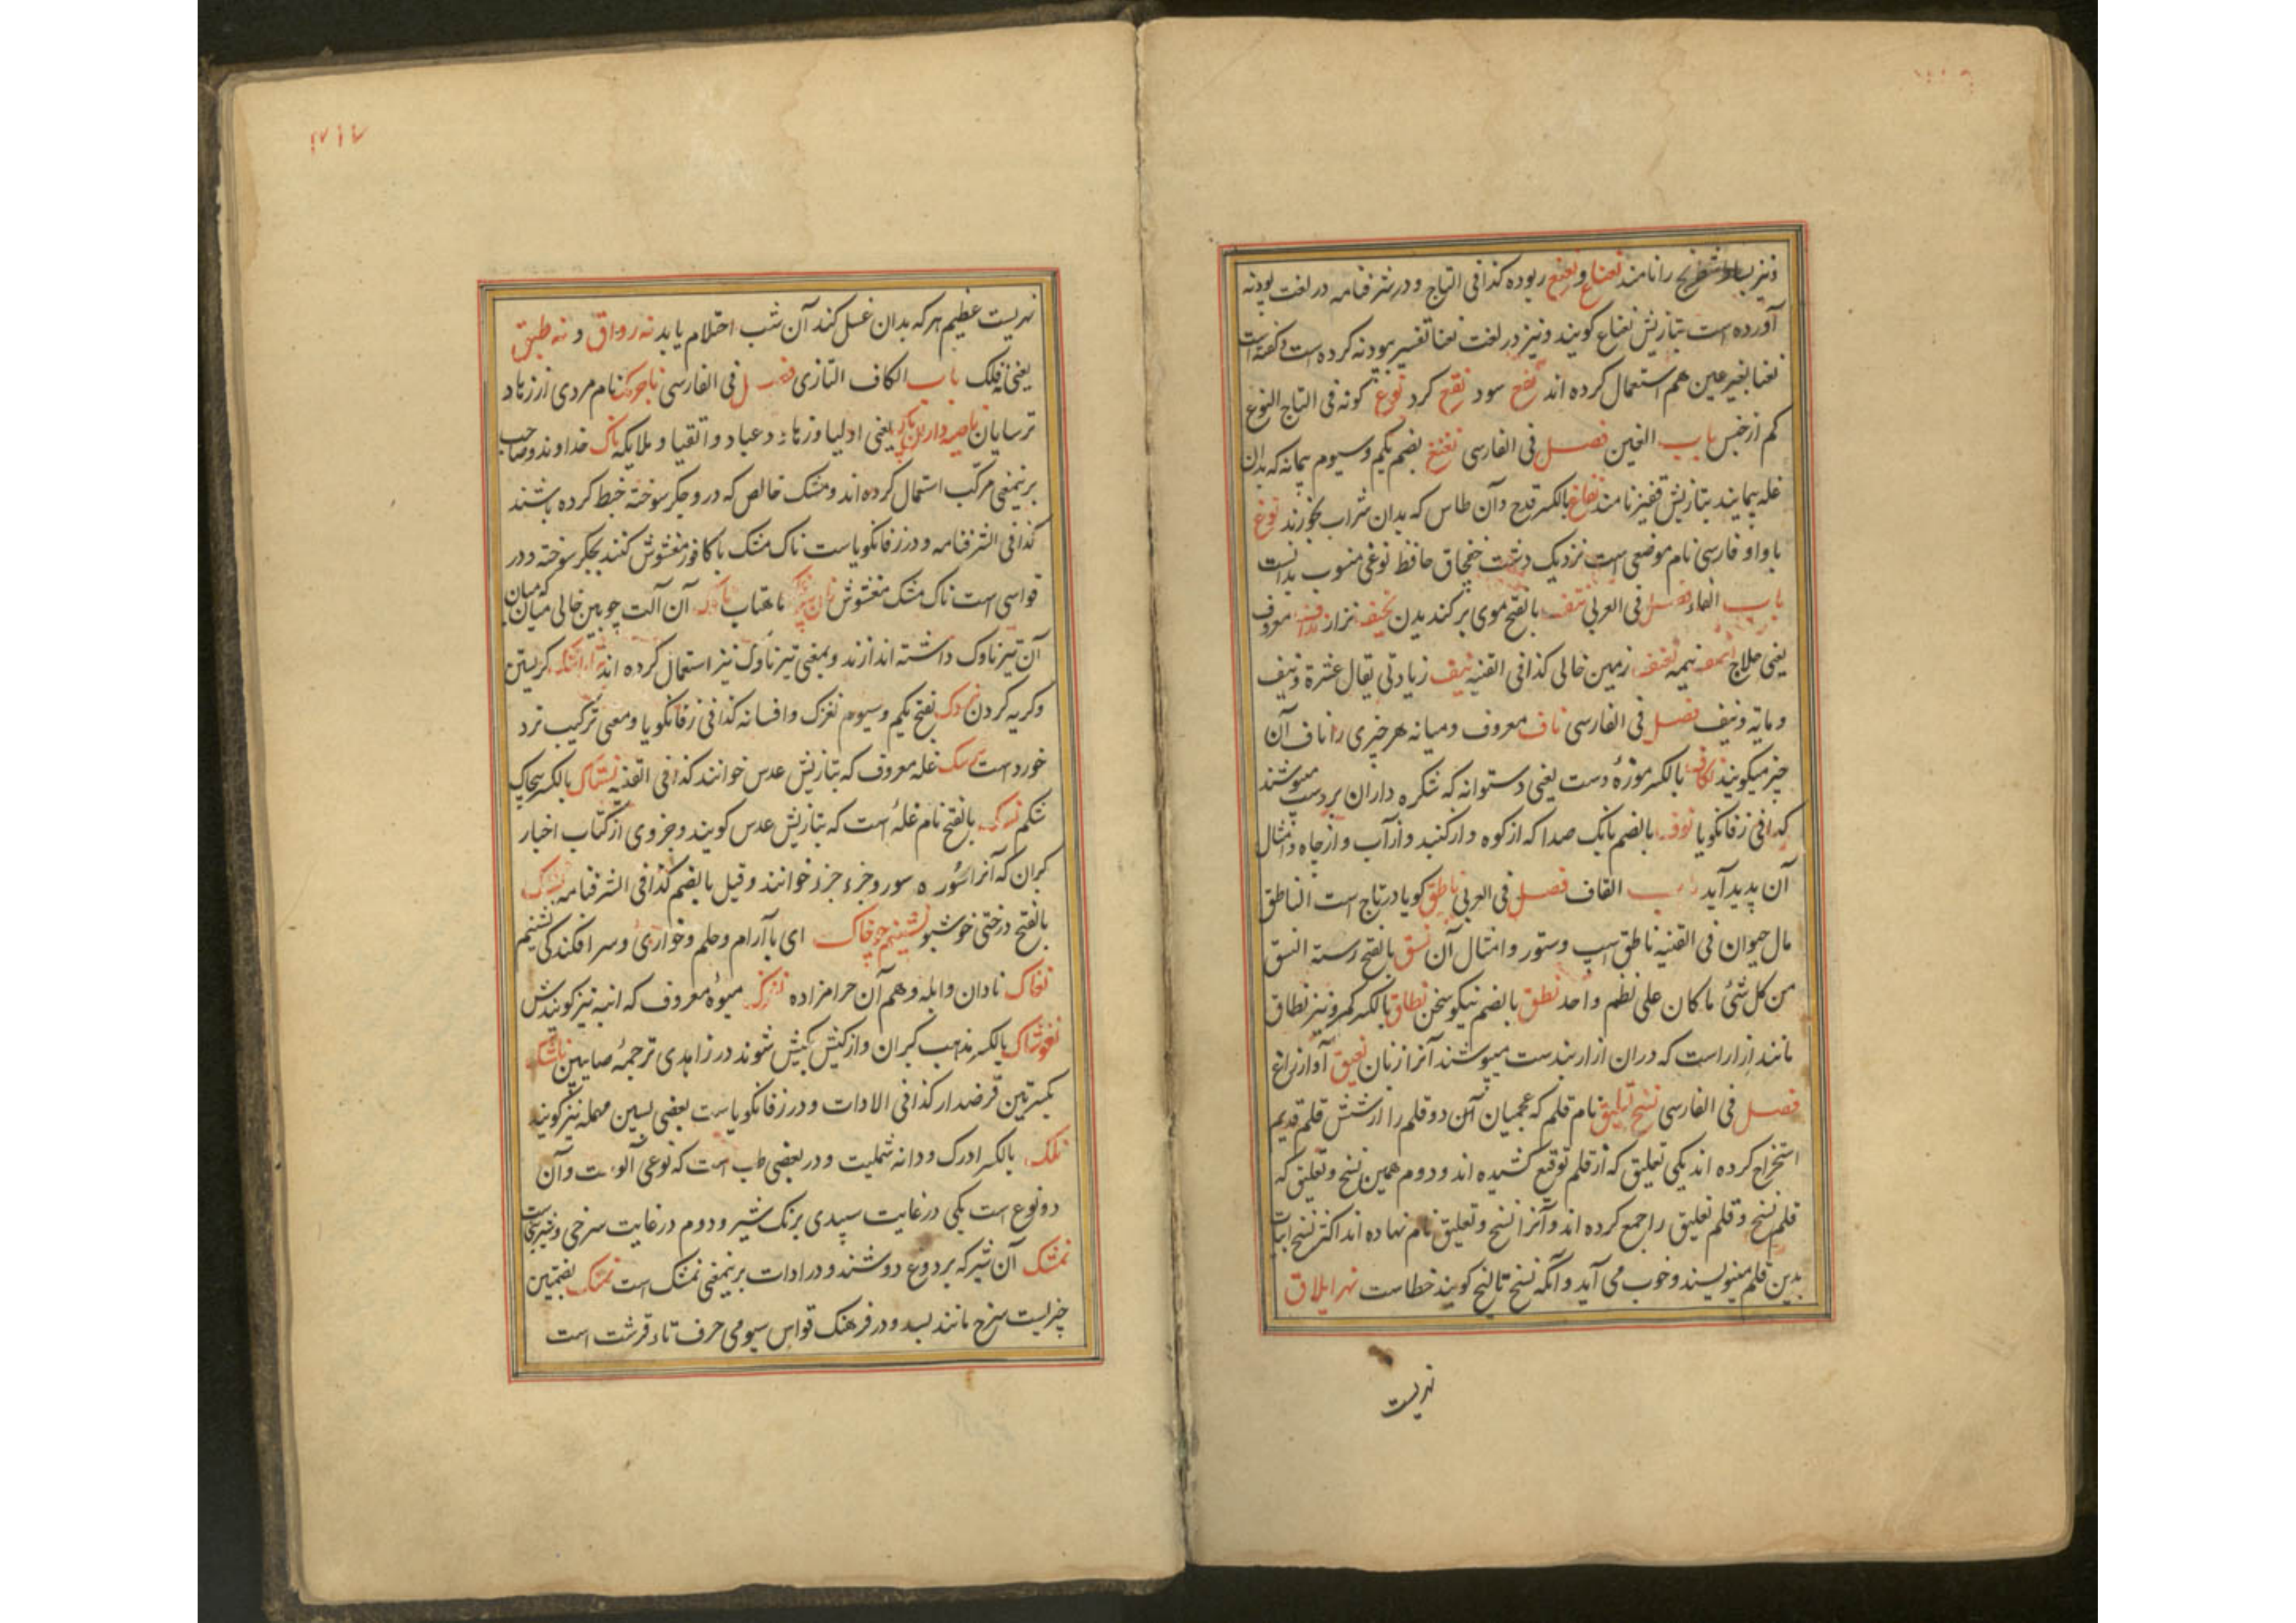 ونیز بساط شطرنج را نامند نعناع و نعنع ربوده کذا فی التاج و در شرفنامه در لغت بودنه
آورده است بتازیش نعناع کویند و نیز در لغت نعنا تفسیر بودنه کرده است و کفته است
نعنا بغیر عین هم استعمال کرده اند نفع سود نقع کرد نوع کونه فی التاج النوع
کم از جنس باب الغین فصل فی الفارسی نغنغ بضم یکم و سیوم پیمانه که بدان
غله پیمایند بتازیش قفیز نامند نفاغ بالکسر قدح و آن طاس که بدان شراب بخورند نوغ
با واو فارسی نام موضعی است نزدیک دشت خفچاق حافظ نوغی منسوب بدانست
باب الفاء فصل فی العربی نتف بالفتح موی بر کندیدن نحیف نزار نداف معروف
یعنی حلاج نصف نیمه نفنف زمین خالی کذا فی القنیه نیف زیادتی یقال عشرة و نیف
و مایة و نیف فصل فی الفارسی ناف معروف و میانه هر چیزی را ناف آن
چیز میکویند نکاف بالکسر موزۀ دست یعنی دستوانه که شکره داران بر دست میپوشند
کذا فی زفانکویا نوف بالضم بانک صدا که از کوه و از کنبد و از آب و از چاه و امثال
آن پدید آید باب القاف فصل فی العربی ناطق کویا در تاج است الناطق
مال حیوان فی القنیه ناطق اسپ و ستور و امثال آن نسق بالفتح رسته النسق
من کل شئ ما کان علی نظم واحد نطق بالضم نیکو سخن نطاق بالکسر کمر و نیز نطاق
مانند ازار است که دران ازاربندست میپوشند آنرا زنان نعیق آواز زاغ
فصل فی الفارسی نسخ تعلیق نام قلم که عجمیان آن دو قلم را از شش قلم قدیم
استخراج کرده اند یکی تعلیق که از قلم توقیع کشیده اند و دوم همین نسخ و تعلیق که
قلم نسخ و قلم تعلیق را جمع کرده اند و آنرا نسخ و تعلیق نام نهاده اند اکثر نسخ ابیات
بدین قلم مینویسند و خوب می آید و آنکه نسخ تالیح کویند خطاست نهر ایلاق
نهریست
۱۷۱۷
نهریست عظیم هر که بدان غسل کند آن شب احتلام یابد نه رواق و نه طبق
یعنی نه فلک باب الکاف التازی فصل فی الفارسی ناجرمک نام مردی از زهاد
ترسایان ناصیه داران پاک یعنی اولیا و زهاد و عباد و اتقیا و ملایکه ناک خداوند و صاحب
برینمعنی مرکب استعمال کرده اند و مشک خالص که درو جکر سوخته خبط کرده باشند
کذا فی الشرفنامه و در زفانکویاست ناک مشک یا کافور مغشوش کنند بجکر سوخته و در
قواسی است ناک مشک مغشوش ماهتاب ناوک آن آلت چوبین خالی میان که میان
آن تیر ناوک داشته اندازند و بمعنی تیر ناوک نیز استعمال کرده اند کریستن
و کریه کردن نردک بفتح یکم و سیوم نغزک و افسانه کذا فی زفانکویا و معنی ترکیب نرد
خورد است نسک غله معروف که بتازیش عدس خوانند کذا فی القنیه نستاک بالکسر پیچاک
شکم نسک بالفتح نام غلۀ است که بتازیش عدس کویند و جزوی از کتاب اخبار
کبران که آنرا سوره سوره و جزء جزء خوانند و قیل بالضم کذا فی الشرفنامه نشک
بالفتح درختی خوشبو نشینم چو خاک ای با آرام و حلم و خواری و سر افکندکی نشینم
نغاک نادان و ابله و هم آن حرامزاده نغزک میوۀ معروف که انبه نیز کویندش
نغوشاک بالکسر مذهب کبران و از کیش بکیش شوند در زاهدی ترجمۀ صابیین
بکسرتین قرضدار کذا فی الادات و در زفانکویاست بعضی بسین مهمله نیز کویند
نلک بالکسر ادرک و دانه شملیت و در بعضی طب است که نوعی آلوست و آن
دو نوع است یکی در غایت سپیدی برنک شیر و دوم در غایت سرخی
نمشک آن شیر که بر دوغ دوشند و در ادات برینمعنی نمشک است نمتک بضمتین
چیزیست سرخ مانند بسد و در فرهنک قواس سیومی حرف تاء قرشت است